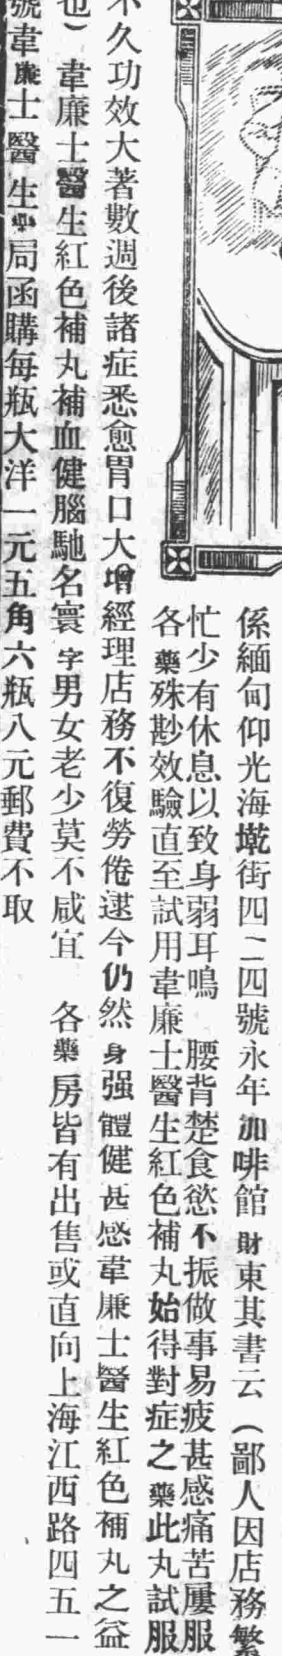 係緬甸仰光海墘街四二四號永年加啡館財東其書云（鄙人因店務繁
忙少有休息以致身弱耳鳴　腰背楚食慾不振做事易疲甚感痛苦屢服
各藥殊尠效驗直至試用韋廉士醫生紅色補丸始得對症之藥此丸試服
不久功效大著數週後諸症悉愈胃口大增經理店務不復勞倦逮今仍然身强體健甚感韋廉士醫生紅色補丸之益
也）韋廉士醫生紅色補丸補血健腦馳名寰字男女老少莫不咸宜　各藥房皆有出售或直向上海江西路四五一
號韋廉士醫生藥局函購每瓶大洋一元五角六瓶八元郵費不取